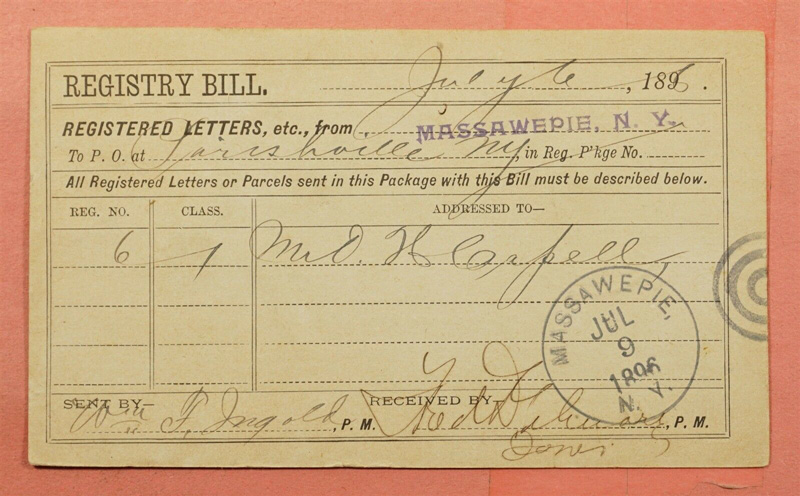 REGISTRY BILL. July 6, 1896.
REGISTERED LETTERS, etc., from MASSAWEPIE, N. Y.
To P. O. at NY, in Reg. P'kge No.
All Registered Letters or Parcels sent in this Package with this Bill must be described below.
REG. NO. CLASS. ADDRESSED TO—
6 1 Mr O. H.
MASSAWEPIE, N. Y.
JUL
9
1896
SENT BY— Wm F. Ingold, P. M. RECEIVED BY— Fred, P. M.